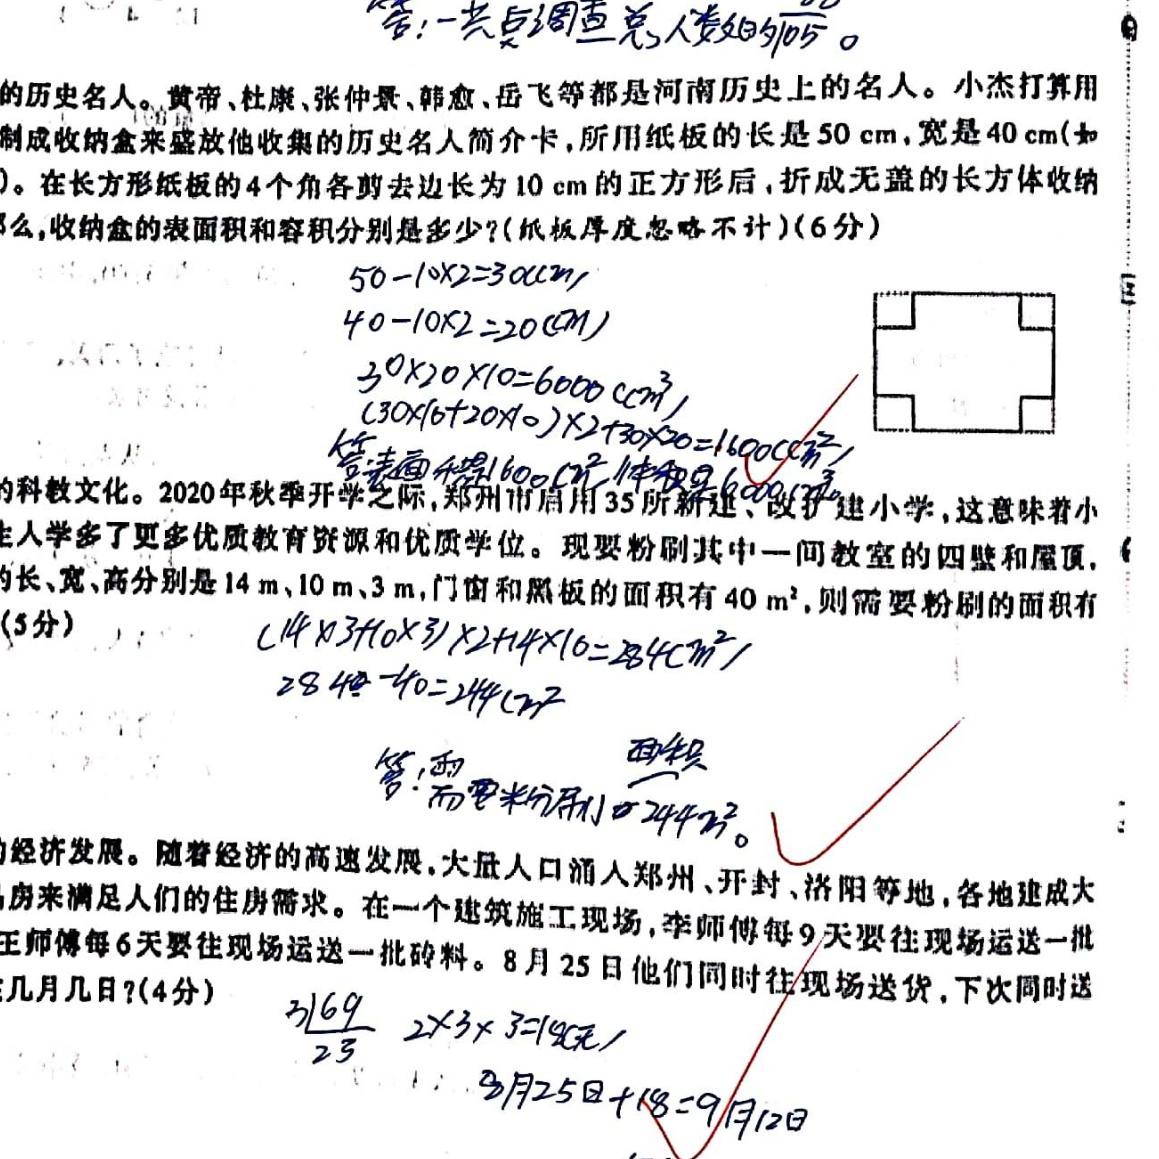 答:一共点调查总人数的/105。
的历史名人。黄帝、杜康、张仲景、韩愈、岳飞等都是河南历史上的名人。小杰打算用
制成收纳盒来盛放他收集的历史名人简介卡,所用纸板的长是50 cm,宽是40 cm(如
)。在长方形纸板的4个角各剪去边长为10 cm的正方形后,折成无盖的长方体收纳
么,收纳盒的表面积和容积分别是多少?(纸板厚度忽略不计)(6分)
50-10×2=30(cm)
40-10×2=20(cm)
30×20×10=6000(cm³)
(30×10+20×10)×2+30×20=1600(cm²)
答:表面积是1600cm²,体积是6000cm³。
的科教文化。2020年秋季开学之际,郑州市启用35所新建、改扩建小学,这意味着小
生入学多了更多优质教育资源和优质学位。现要粉刷其中一间教室的四壁和屋顶,
的长、宽、高分别是14 m、10 m、3 m,门窗和黑板的面积有40 m²,则需要粉刷的面积有
(5分)
(14×3+10×3)×2+14×10=284(m²)
284-40=244(m²
面积
答:需要粉刷 244m²。
的经济发展。随着经济的高速发展,大量人口涌入郑州、开封、洛阳等地,各地建成大
房来满足人们的住房需求。在一个建筑施工现场,李师傅每9天要往现场运送一批
王师傅每6天要往现场运送一批砖料。8月25日他们同时往现场送货,下次同时送
几月几日?(4分)
3|6 9
2 3
2×3×3=18(天)
8月25日+18=9月12日